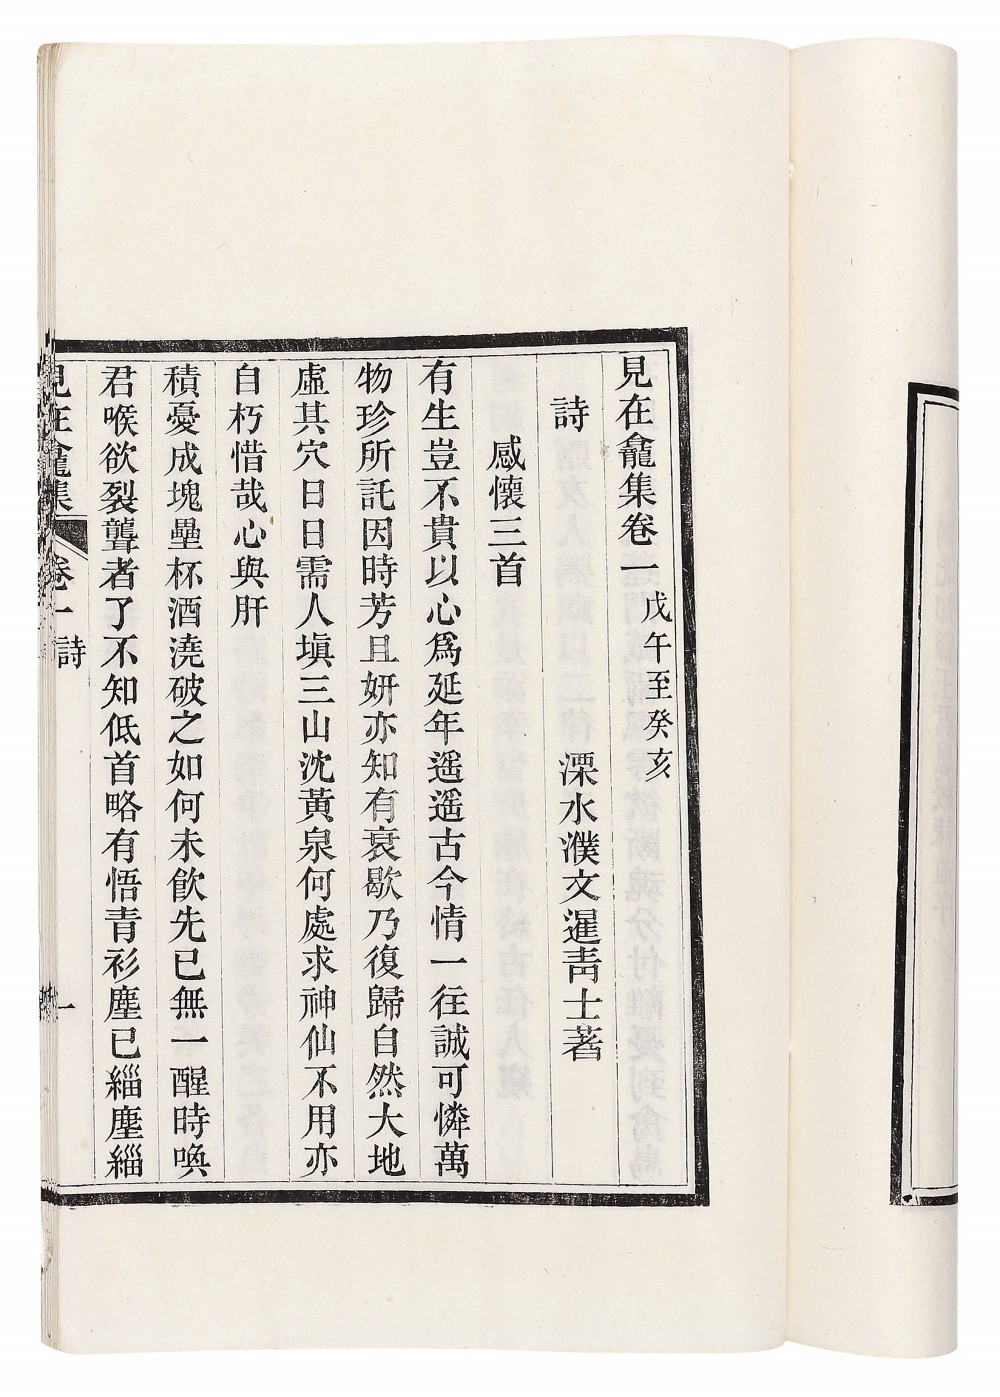 見在龕集卷一 戊午至癸亥
詩 溧水濮文暹靑士著
感懷三首
有生豈不貴以心爲延年遥遥古今情一往誠可憐萬
物珍所託因時芳且妍亦知有衰歇乃復歸自然大地
虛其穴日日需人塡三山沈黃泉何處求神仙不用亦
自朽惜哉心與肝
積憂成塊壘杯酒澆破之如何未飮先已無一醒時喚
君喉欲裂聾者了不知低首略有悟青衫塵已緇塵緇
見在龕集 卷一 詩 一